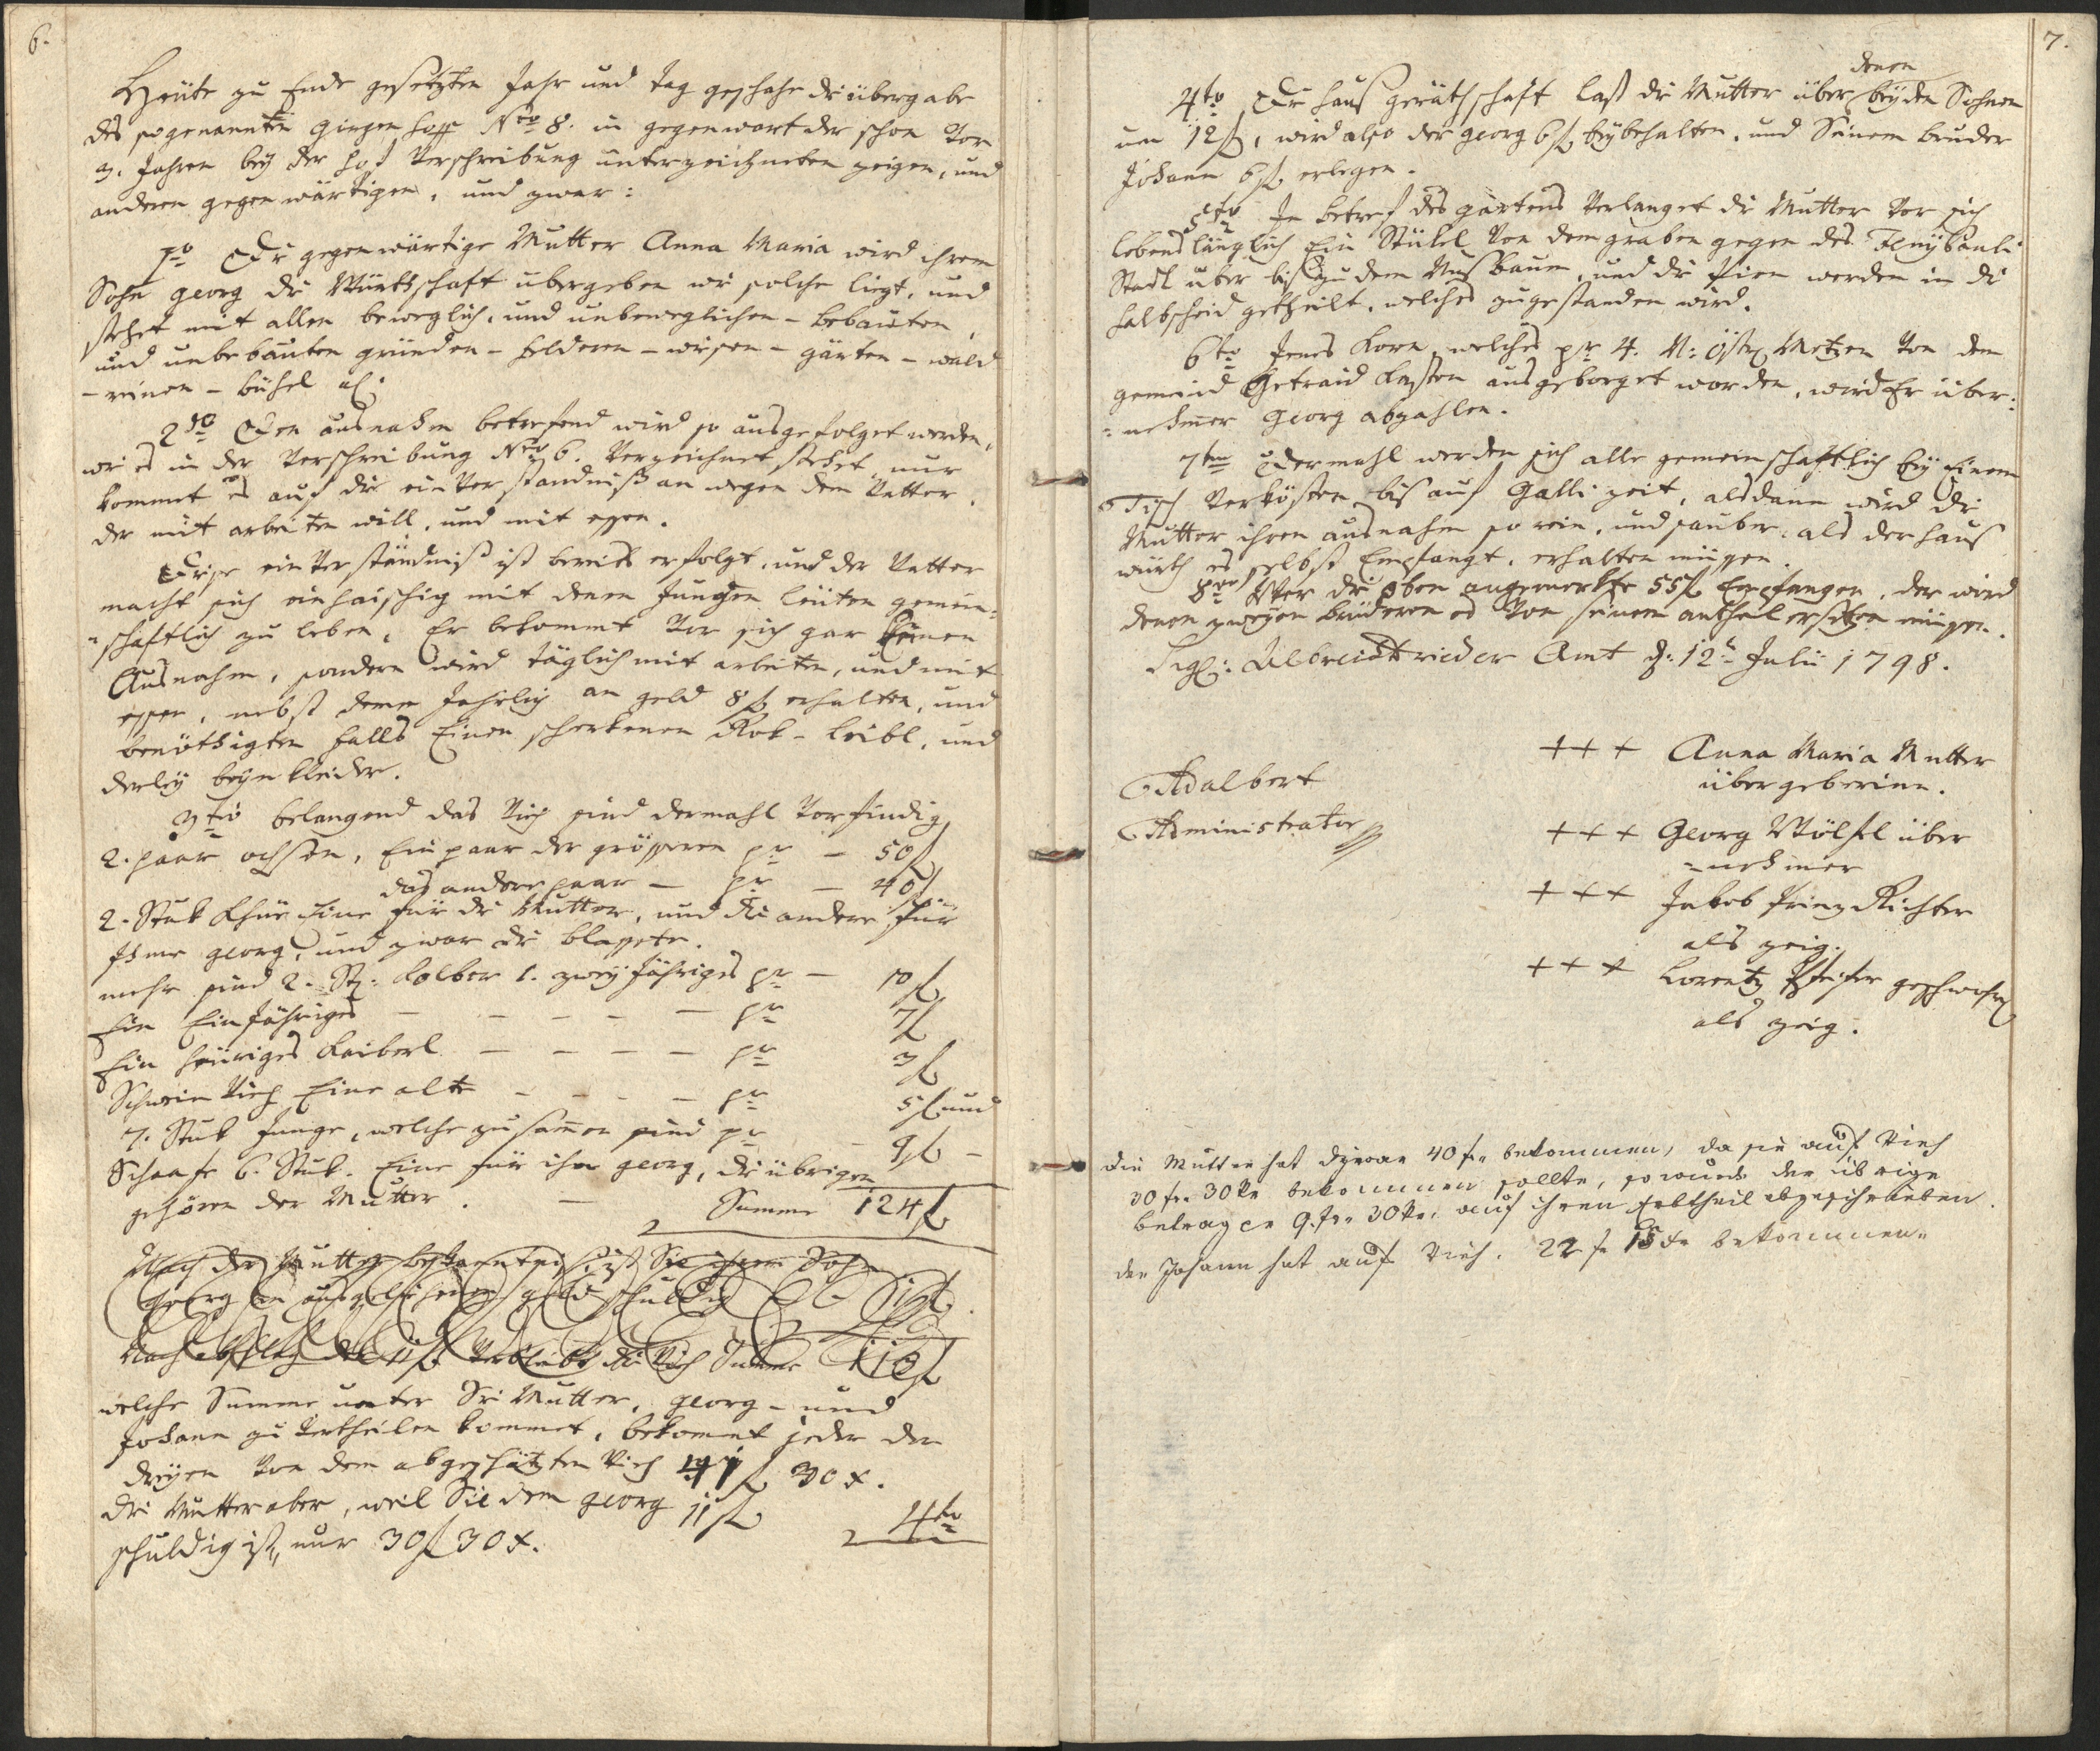 6.
Heüte zu Ende gesetzten Jahr und tag geschahe di übergabe
des sogenannten Girgen Hoff Nro 8. in gegenwart der schon vor
3. Jahren beÿ der Hof verschreibung unterzeichneten zeigen, und
anderen gegenwärtigen, und zwar:
1mo Di gegenwärtige Mutter Anna Maria wird ihrem
Sohn georg di Würtschaft übergeben wi solche liegt, und
stehet mit allen beweglich, und unbeweglichen - bebauten,
und unbebauten gründen - felderen - wisen - gärten - wald
- rinen - bühel etc:
2do Den ausnahm betrefend wird so ausgefolget werden,
wi es in der Verschreibung Nro 6. verzeichnet stehet, nur
kommet es auf di einverständniß an wegen dem Vatter,
der mit arbeiten will, und mit essen.
Dise einverständniß ist bereits erfolgt, und der Vatter
macht sich einhaischig mit denen Jungen leüten gemein=
=schaftlich zu leben, Er bekommt vor sich gar keinen
Ausnahm, sondern wird täglich mit arbeiten, und mit
essen, nebst deme Jahrlich an geld 8 f erhalten, und
benöthigten falls Einen scherkenen Rok - leibl, und
derleÿ beÿnkleider.
3tio belangend das Vieh sind dermahl vorfindig
2. paar ochsen, Ein paar der grösseren pr - 50 f
das andere paar - pr - 40 f.
2. Stuk Khüe Eine für di Mutter, und di andere für
Ihme georg, und zwar di blassete.
mehr sind 2. St: Kalber 1. zweÿ Jähriges pr - 10 f
Ein Einjähriges - - - - - pr 7 f
Ein heüriges Kaiberl - - - - pr 3 f
Schwein Vieh Eine alte - - - - pr 5 f und
7. Stuk Junge, welche zusamen sind pr - 9 f -
Schaafe 6. Stuk. Eine für ihn georg, di übrigen
gehören der Mutter. - Summe 124 f
Nach der Mutter bekantniß ist Sie ihrem Sohn
Georg an ausgelihenen geld schuldig
Nach abschlag der 11 f verbleibt di Vieh Summe 113 f
welche Summe unter Di Mutter, georg - und
Johann zu vertheilen kommet, bekomet jeder der
dreÿen von dem abgeschätzten Vieh 41 f 30 x.
di Mutter aber, weil Sie dem georg 11 f
schuldig ist, nur 30 f 30 x.
4to
7.
denen
4to Di Haus geräthschaft last di Mutter über beÿden Söhnen
um 12 f, wird also der georg 6 f beÿbehalten, und Seinem bruder
Johann 6 f erlegen.
5to In betref des gartens verlanget di Mutter vor sich
lebenslänglich Ein Stükel von dem graben gegen des
Stadl über bis zu dem Nusbaum, und di birn werden in di
halbscheid getheilt, welches zugestanden wird.
6to Jenes Korn, welches pr 4. N: Östr Metzen von dem
gemeind Getraid kasten ausgeborget worden, wird Er über=
=nehmer georg abzahlen.
7mo Dermahl werden sich alle gemeinschaftlich beÿ Einem
Tisch verkösten bis auf Galli zeit, alsdann wird di
Mutter ihren ausnahm so rein, und sauber, als der Haus
würth es selbst Empfangt, erhalten müssen.
8vo Wer di oben angemerkte 55 f Empfangen, der wird
denen zweÿen brüderen es von seinem antheil ersetzen müssen.
Sigl: Albrechtsrieder Amt d: 12t Julii 1798.
Adalbert
Administrator
+++ Anna Maria Mutter
übergeberinn.
+++ Georg Wölfel über
=nehmer
+++ Jakob Prinz Richter
als zeig.
+++ Lorentz Pfeifer geschworner
als zeig.
Die Mutter hat 40 fr bekommen, da sie auf Vieh
30 fr. 30 kr bekommen sollte, so wurde der übrige
betrag pr 9. fr. 30 kr. auf ihren Erbtheil abgeschrieben.
der Johann hat auf Vieh. 22 f 15 kr bekommen.